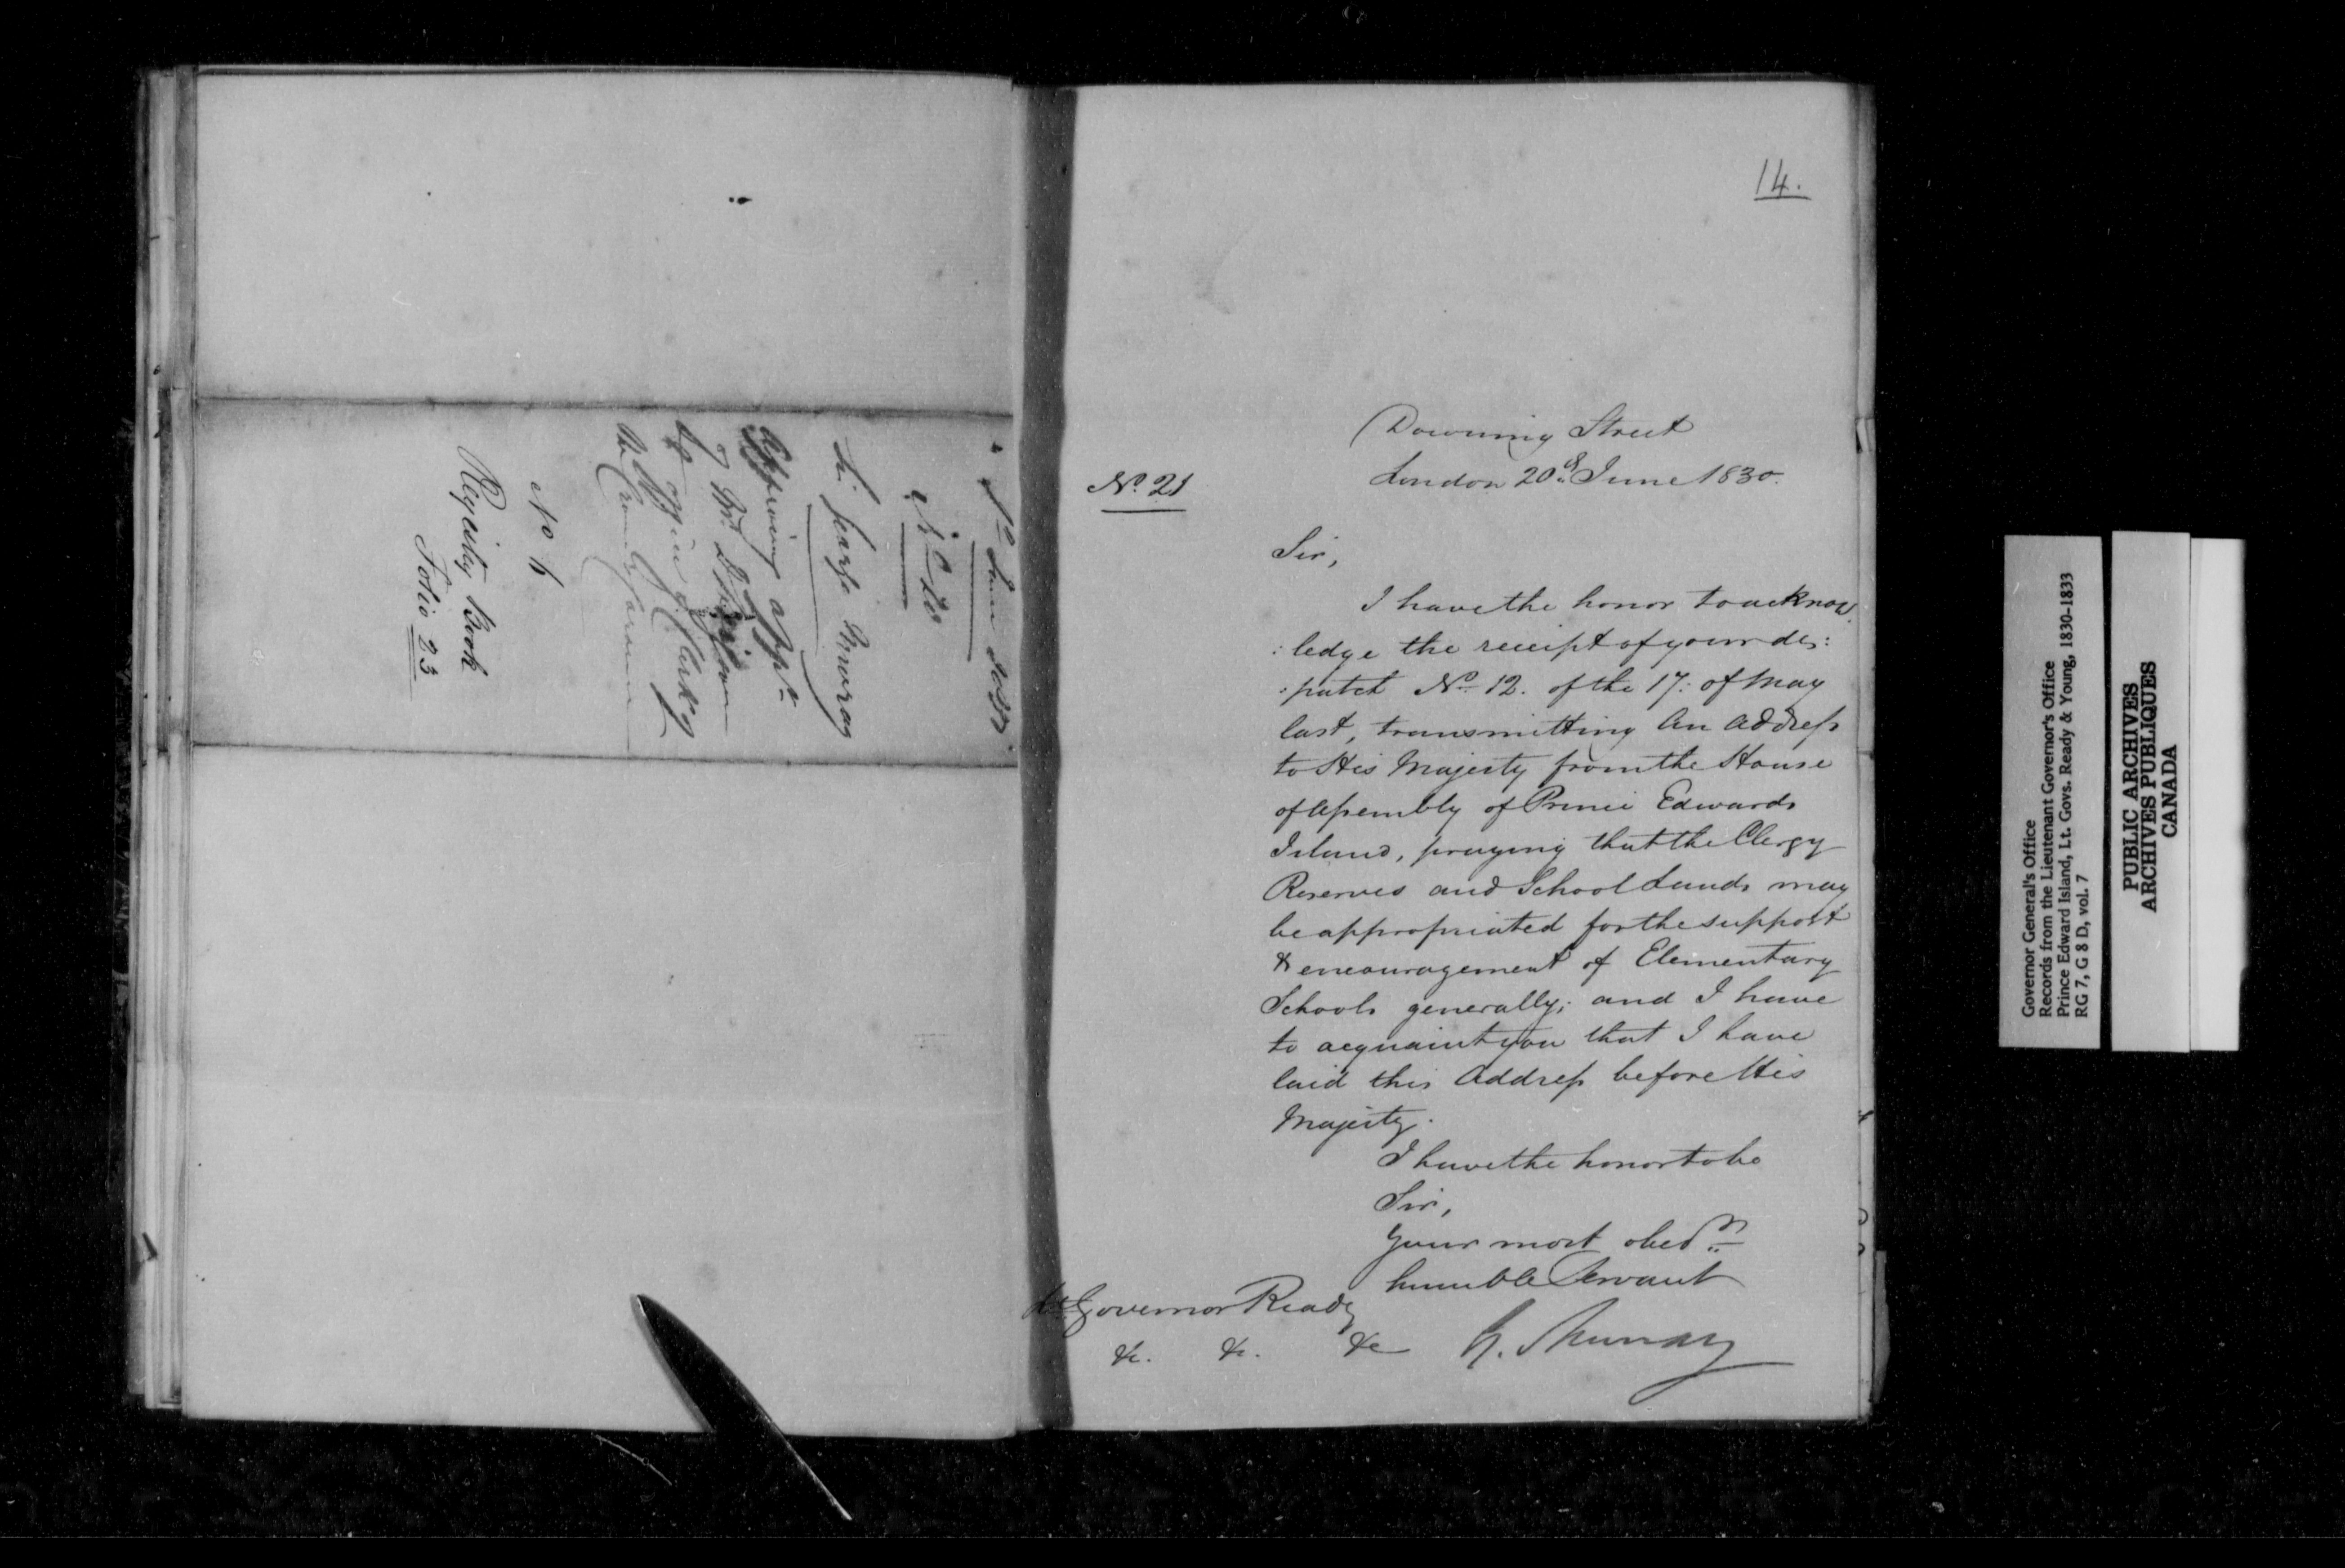 Nº 20
Sir George Murray
Approving appt
of Mr
of
the
No 6
Registry Book
Folio 23
14.
Downing Street
London 20th June 1830.
Nº 21
Sir,
I have the honor to acknow
:ledge the receipt of your des:
:patch Nº 12. of the 17: of May
last, transmitting an Address
to His Majesty from the House
of Assembly of Prince Edwards
Island, praying that the Clergy
Reserves and School Lands may
be appropriated for the support
& encouragement of Elementary
Schools generally; and I have
to acquaint you that I have
laid this Address before His
Majesty.
I have the honor to be
Sir,
Your most obedt
humble Servant
G. Murray
Lt. Governor Ready
&c. &c. &c
Governor General's Office
Records from the Lieutenant Governor's Office
Prince Edward Island, Lt. Govs. Ready & Young, 1830-1833
RG 7, G 8 D, vol. 7
PUBLIC ARCHIVES
ARCHIVES PUBLIQUES
CANADA